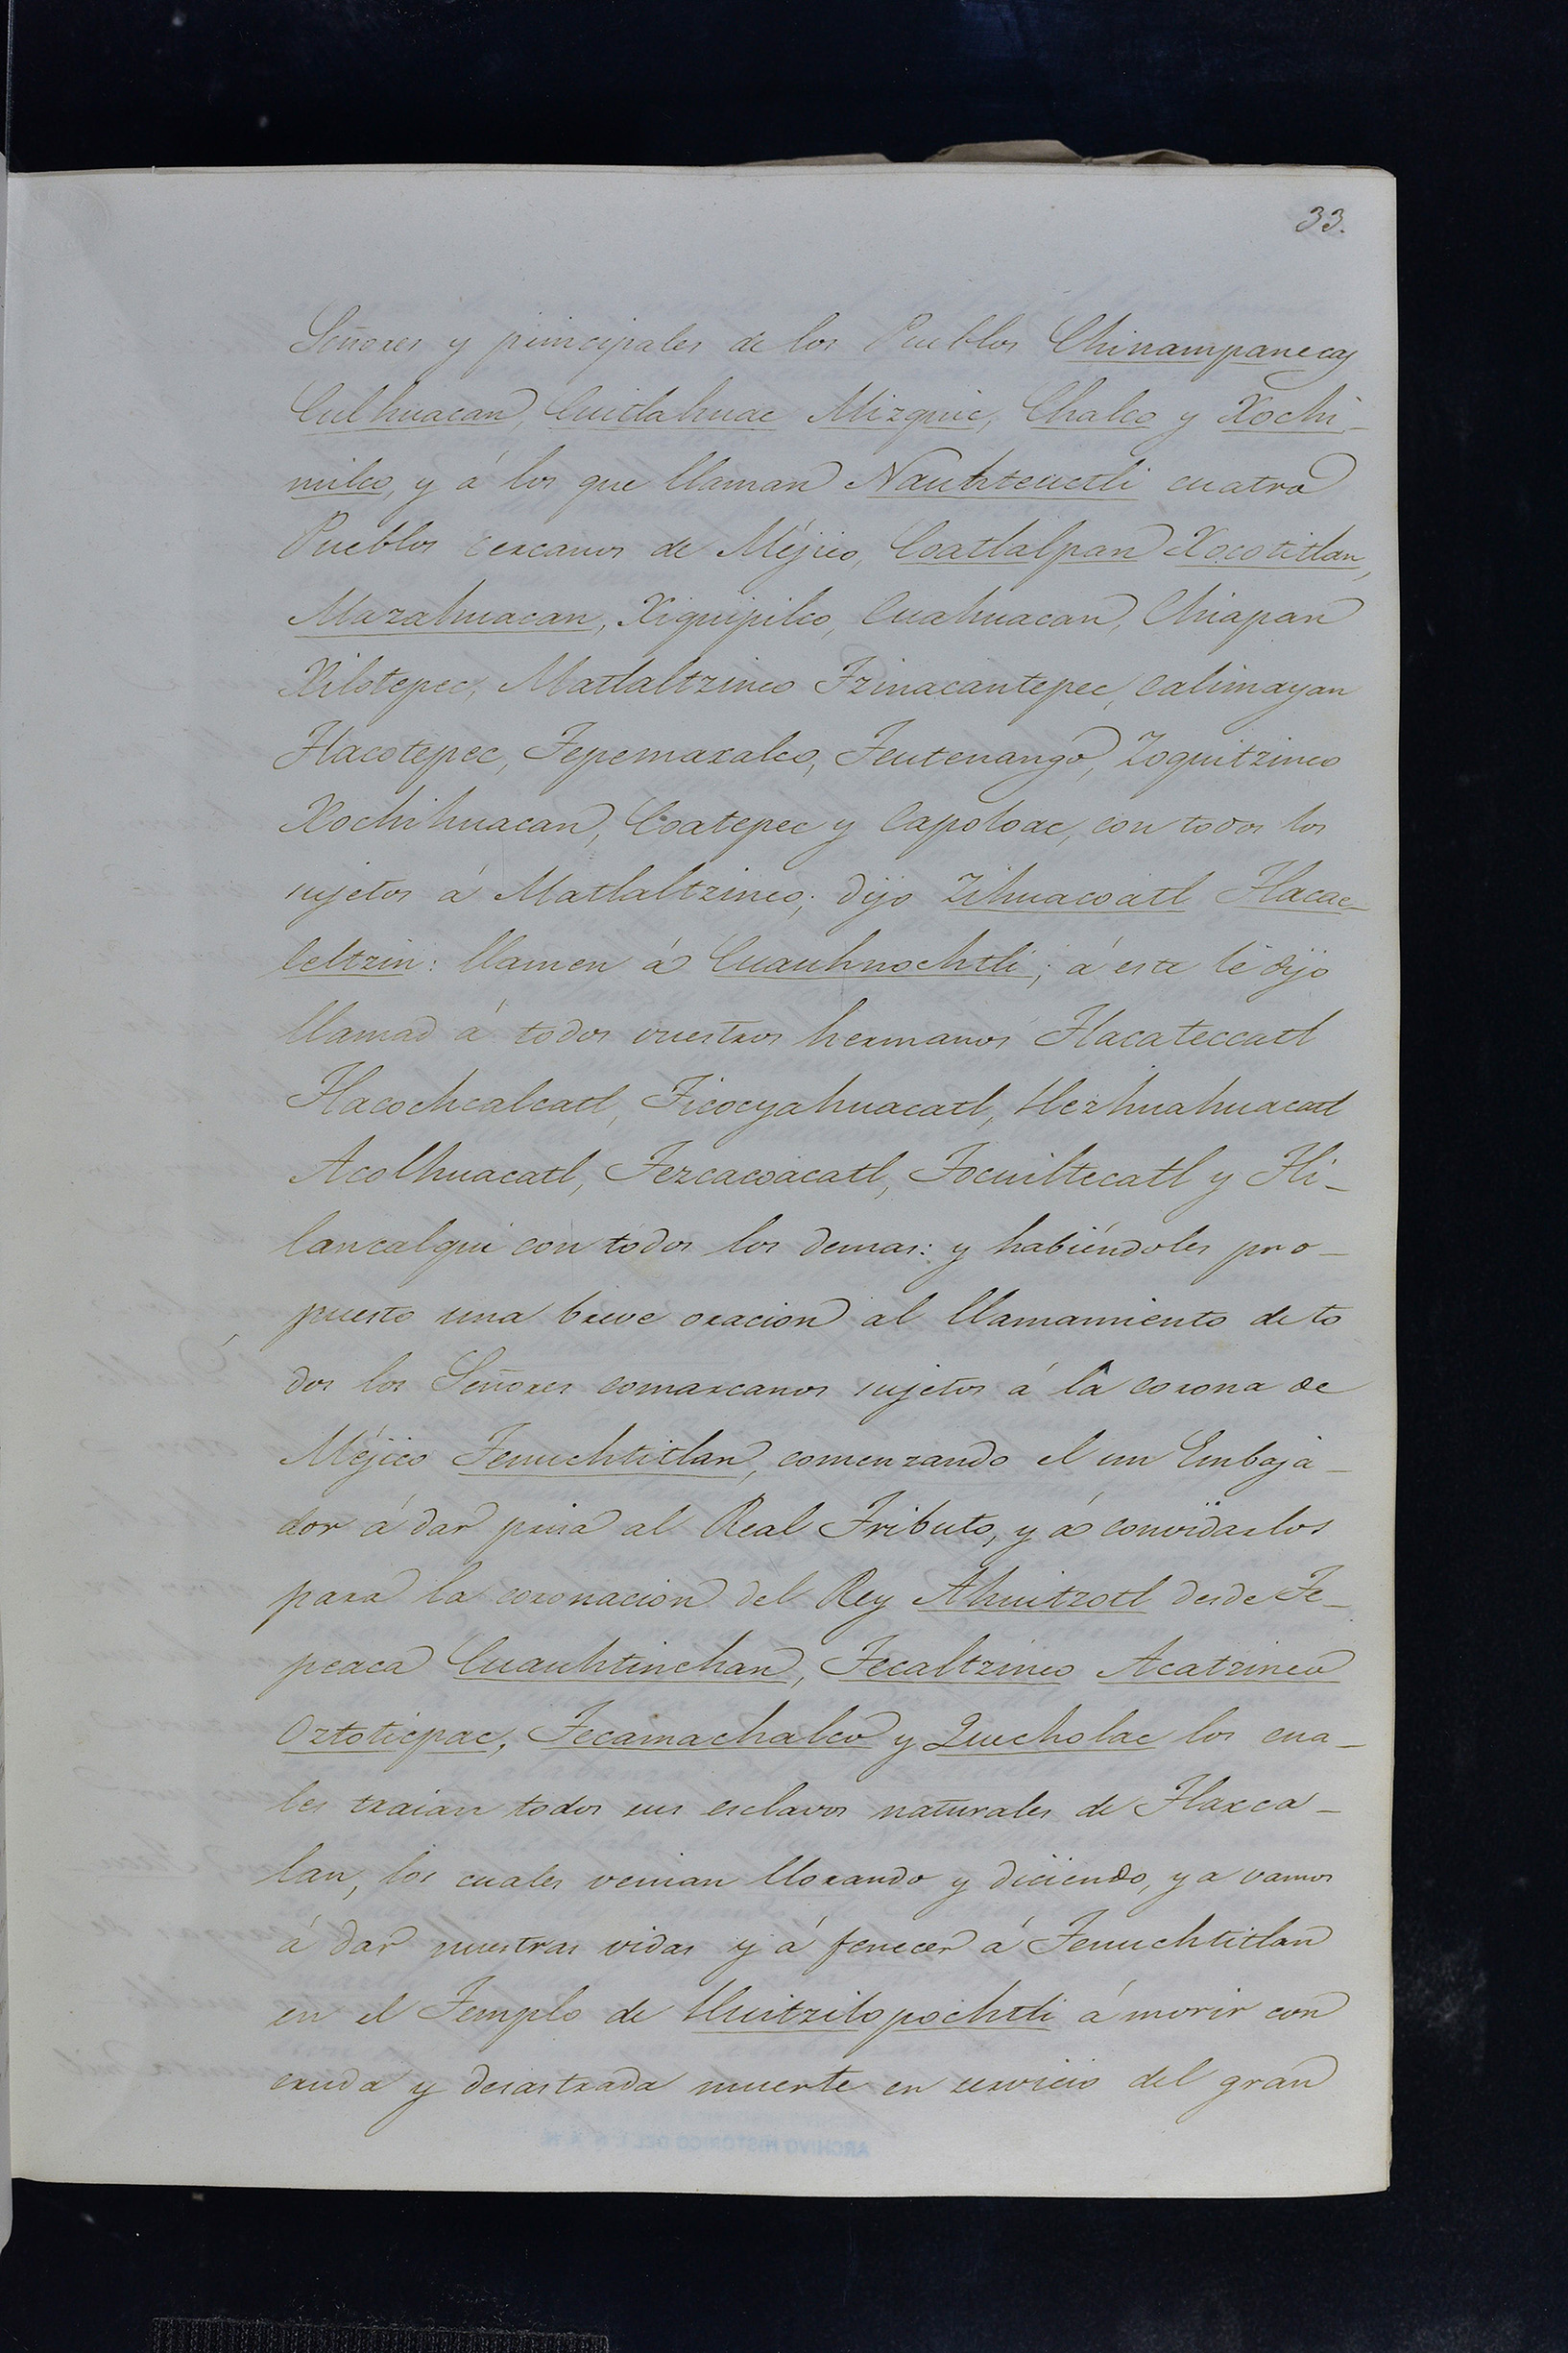 33.
Señores y principales de los Pueblos Chinampanecas
Culhuacan, Cuitlahuac Mizquic, Chalco y Xochi-
milco, y á los que llaman Nauhteuctli cuatro
Pueblos cercanos de Méjico, Coatlalpan Xocotitlan,
Mazahuacan, Xiquipilco, Cuahuacan, Chiapan
Xilotepec, Matlaltzinco Tzinacantepec, Calimayan
Tlacotepec, Tepemaxalco, Teutenango, Zoquitzinco
Xochihuacan, Coatepec y Capoloac, con todos los
sujetos á Matlaltzinco; dijo Zihuacoatl Tlacae-
leltzin: llamen á Cuauhnochtli; á este le dijo
llamad á todos vuestros hermanos Tlacateccatl
Tlacochcalcatl, Ticocyahuacatl, Hezhuahuacatl
Acolhuacatl, Tezcacoacatl, Tocuiltecatl y Tli-
lancalqui con todos los demas: y habiéndoles pro-
puesto una breve oracion al llamamiento de to
dos los Señores comarcanos sujetos á la corona de
Méjico Tenuchtitlan, comenzando el un Embaja-
dor á dar prisa al Real Tributo, y á convidarlos
para la coronacion del Rey Ahuitzotl desde Te-
peaca Cuauhtinchan, Tecaltzinco Acatzinco
Oztoticpac, Tecamachalco y Quecholac los cua-
les traian todos sus esclavos naturales de Tlaxca-
lan, los cuales venian llorando y diciendo, ya vamos
á dar nuestras vidas y á fenecer á Tenuchtitlan
en el Templo de Huitzilopochtli á morir con
cruda y desastrada muerte en servicio del gran
ARCHIVO HISTORICO DEL I. N. A. H.